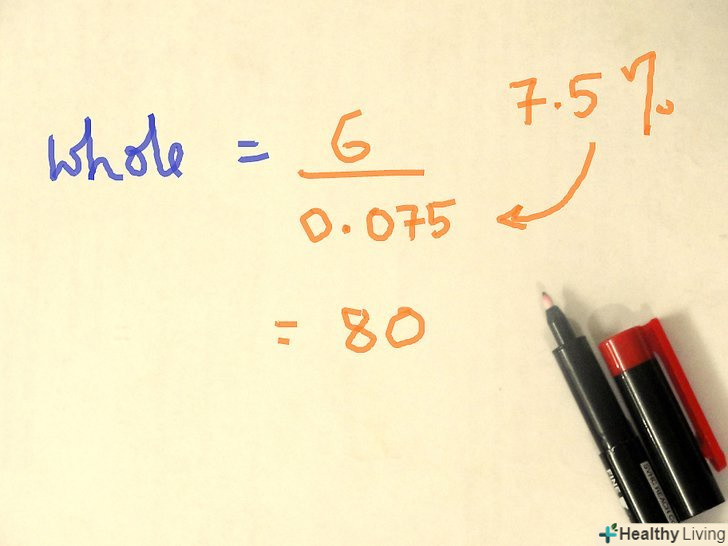 7.5%
whole = 6
0.075
= 80
FINE
Healthy Living